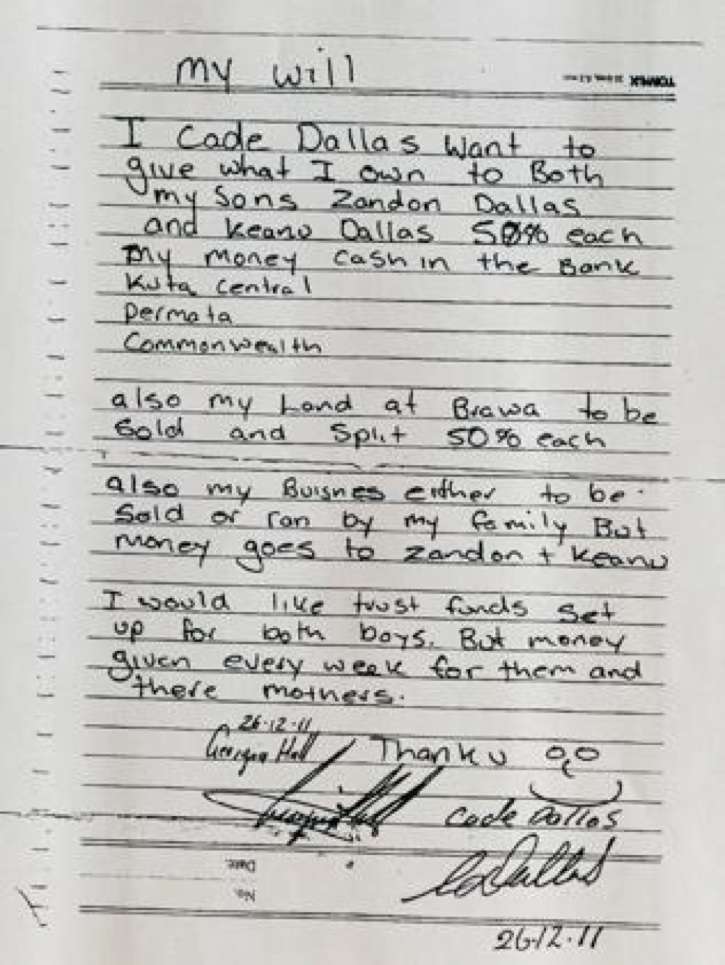 my will
I Cade Dallas want to
give what I own to Both
my Sons Zandon Dallas
and Keanu Dallas 50% each
my money cash in the Bank
Kuta central
Permata
Commonwealth
also my Land at Brawa to be
Sold and Split 50% each
also my Buisnes either to be
Sold or ran by my family But
money goes to Zandon + Keanu
I would like trust funds set
up for both boys. But money
given every week for them and
there mothers.
26-12-11
Georgina Hall
Thank u
Cade Dallas
CDallas
No.
Date:
26-12-11